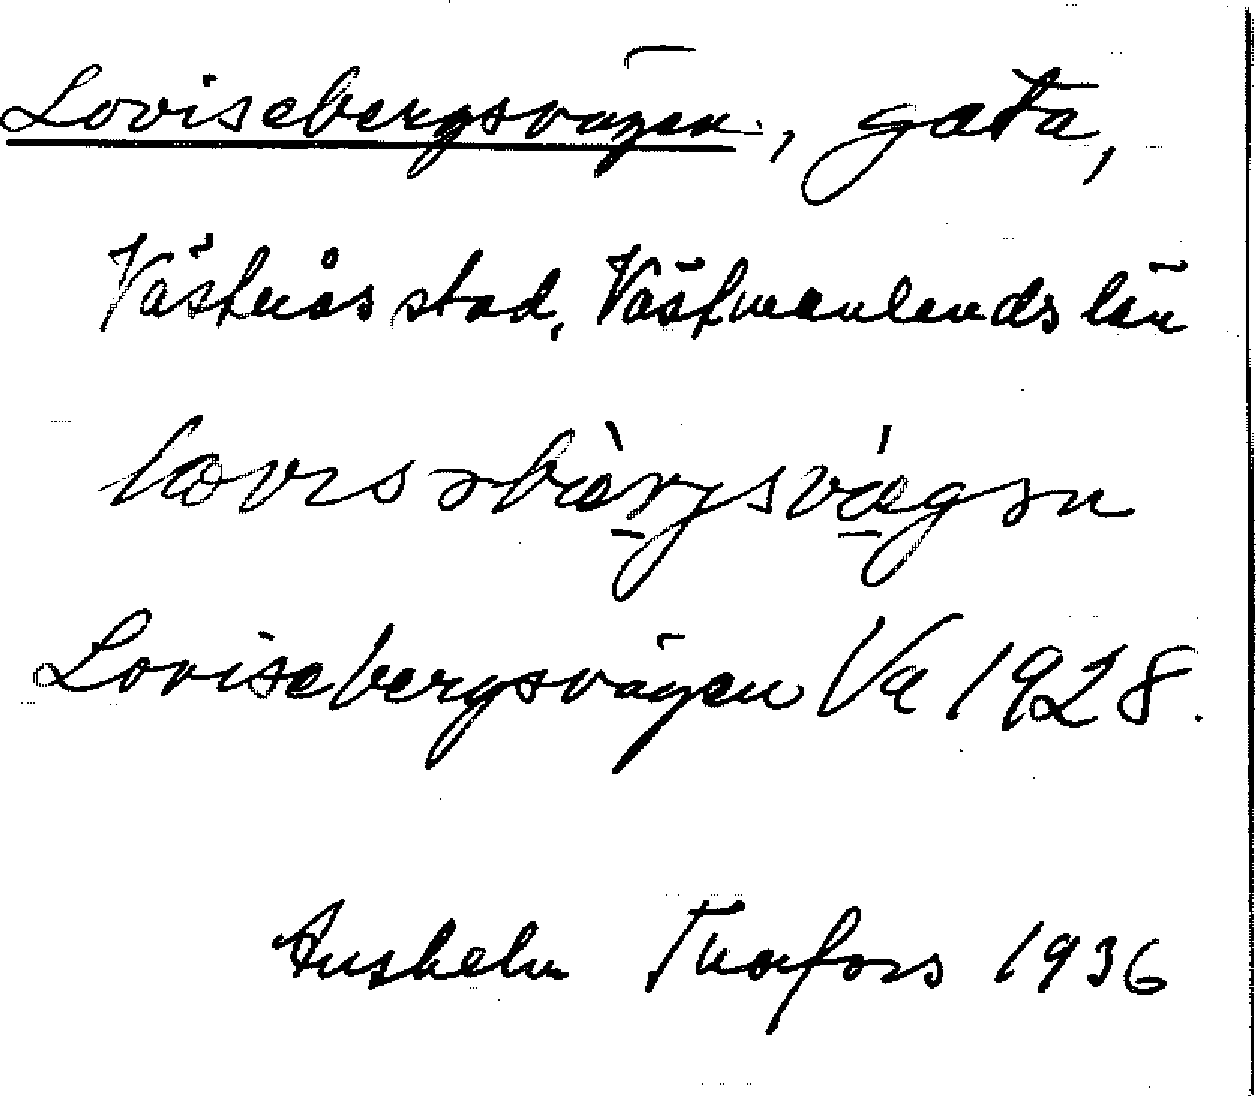 Lovisebergsvägen, gata,
Västerås stad, Västmanlands län
lovisəbæ̀rjsvǽgən
Lovisebergsvägen Va 1928.
Anshelm 1936